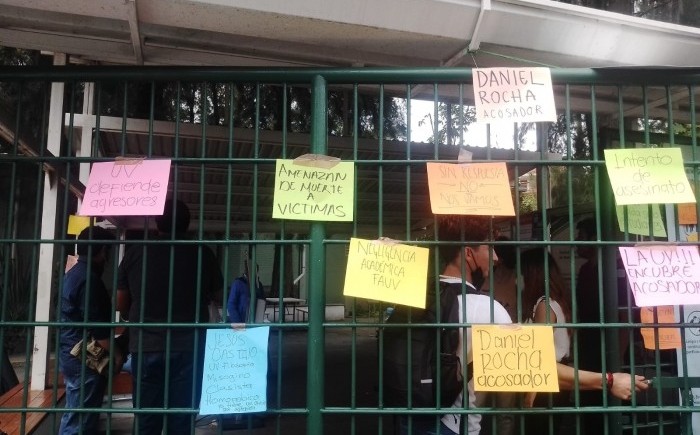 DANIEL
ROCHA
ACOSADOR
UV
defiende
agresores
AMENAZAN
DE MUERTE
A
VICTIMAS
SIN RESPUESTA
NO
NOS VAMOS
Intento
de
asesinato
NEGLIGENCIA
ACADÉMICA
FAUV
LA UV!!!
ENCUBRE
ACOSADOR
JESUS
CASTILLO
Misogino
Clasista
Homofobico
Daniel
Rocha
acosador